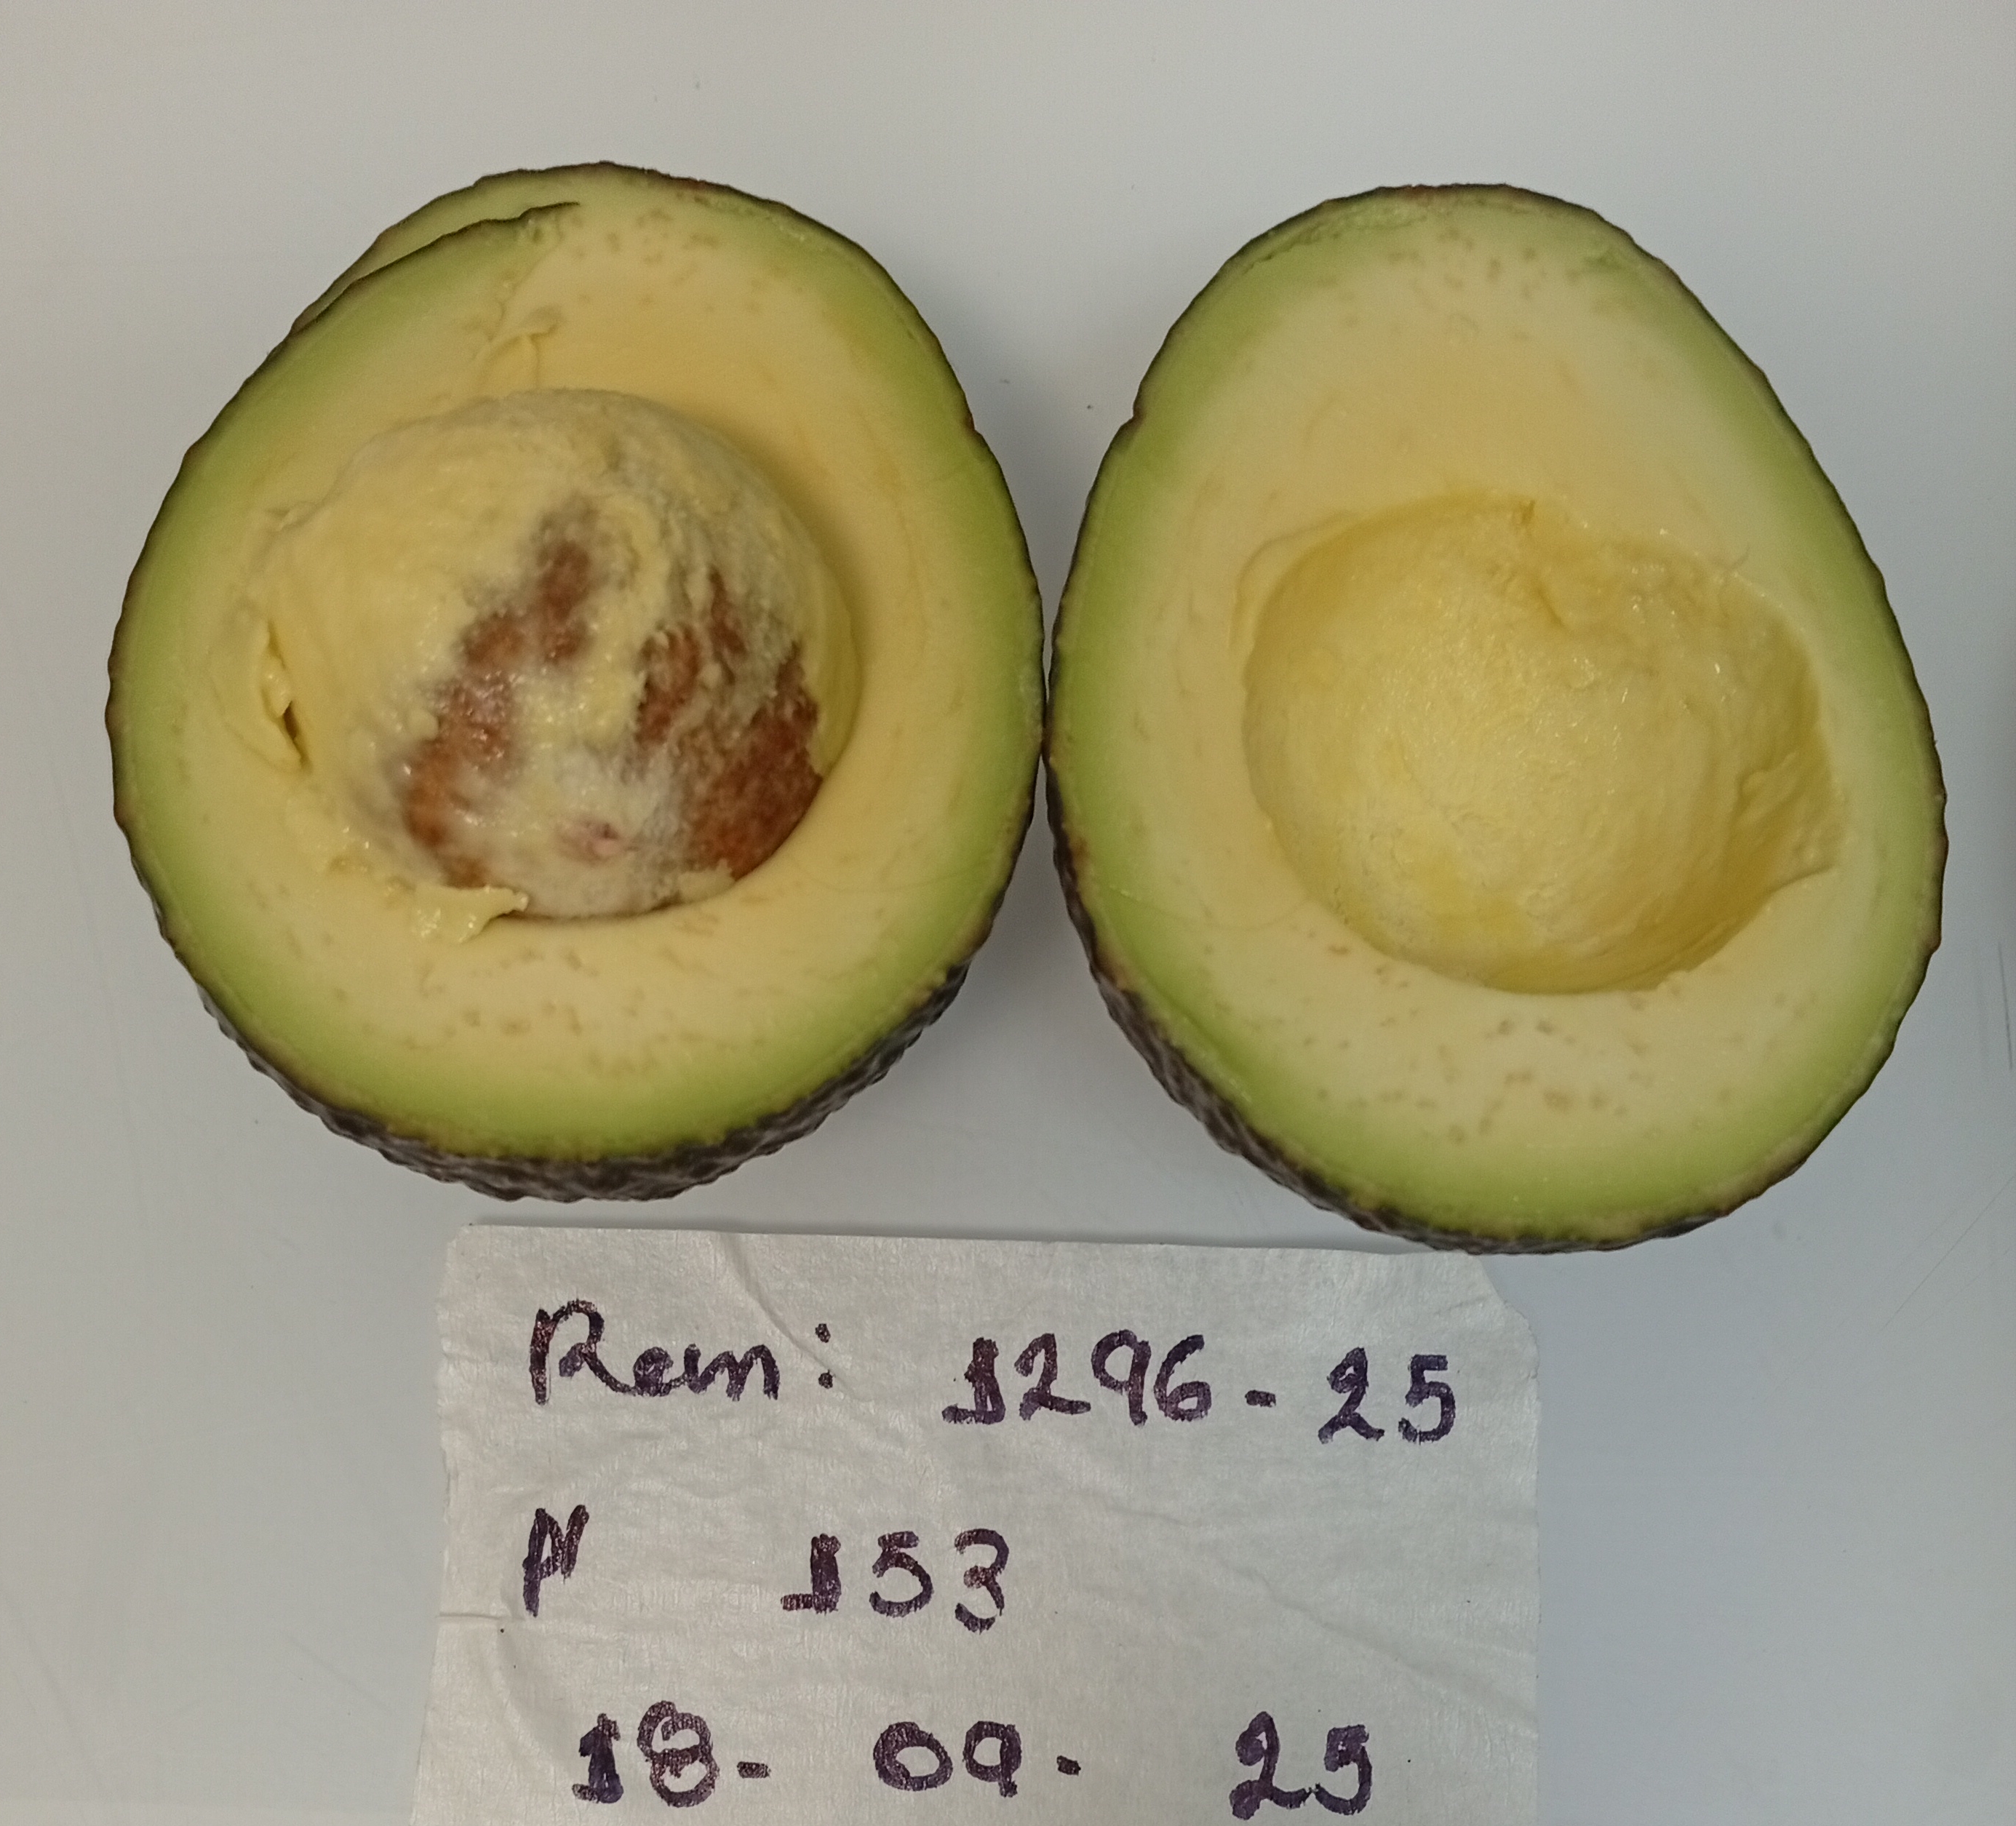 Rem: 1296-25
N 153
18- 09- 25